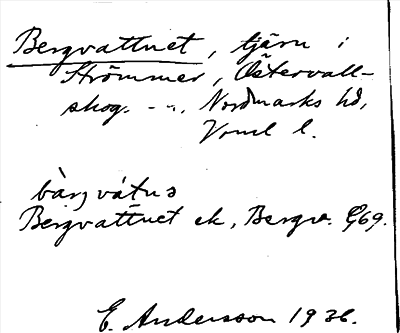 Bergvattnet, tjärn i
Strömmer, Östervall-
skog. - .., Nordmarks hd,
Vrml l.
bàrjvátnə
Bergvattnet ek, Bergv. G69.
E. Andersson 1936.